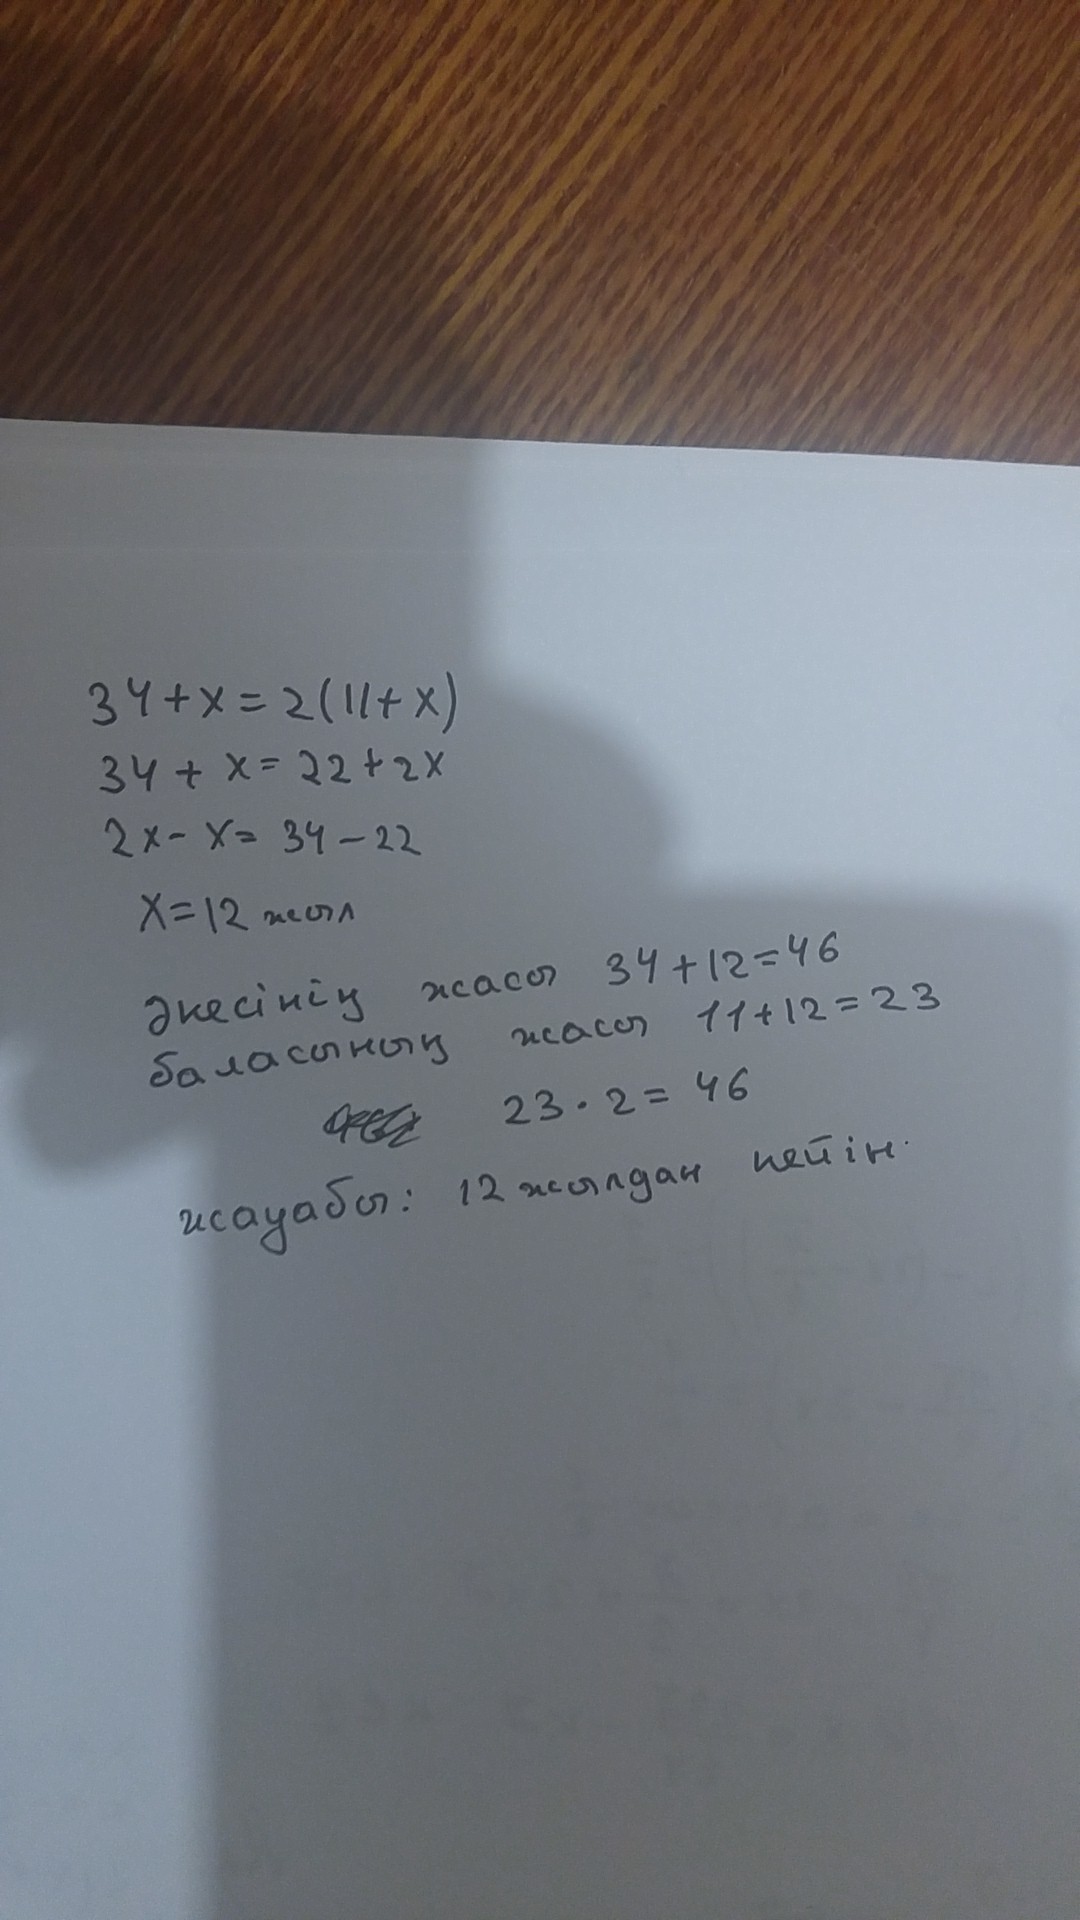 34+x=2(11+x)
34+x=22+2x
2x-x=34-22
x=12 жыл
әкесінің жасы 34+12=46
баласының жасы 11+12=23
23·2=46
жауабы: 12 жылдан кейін.